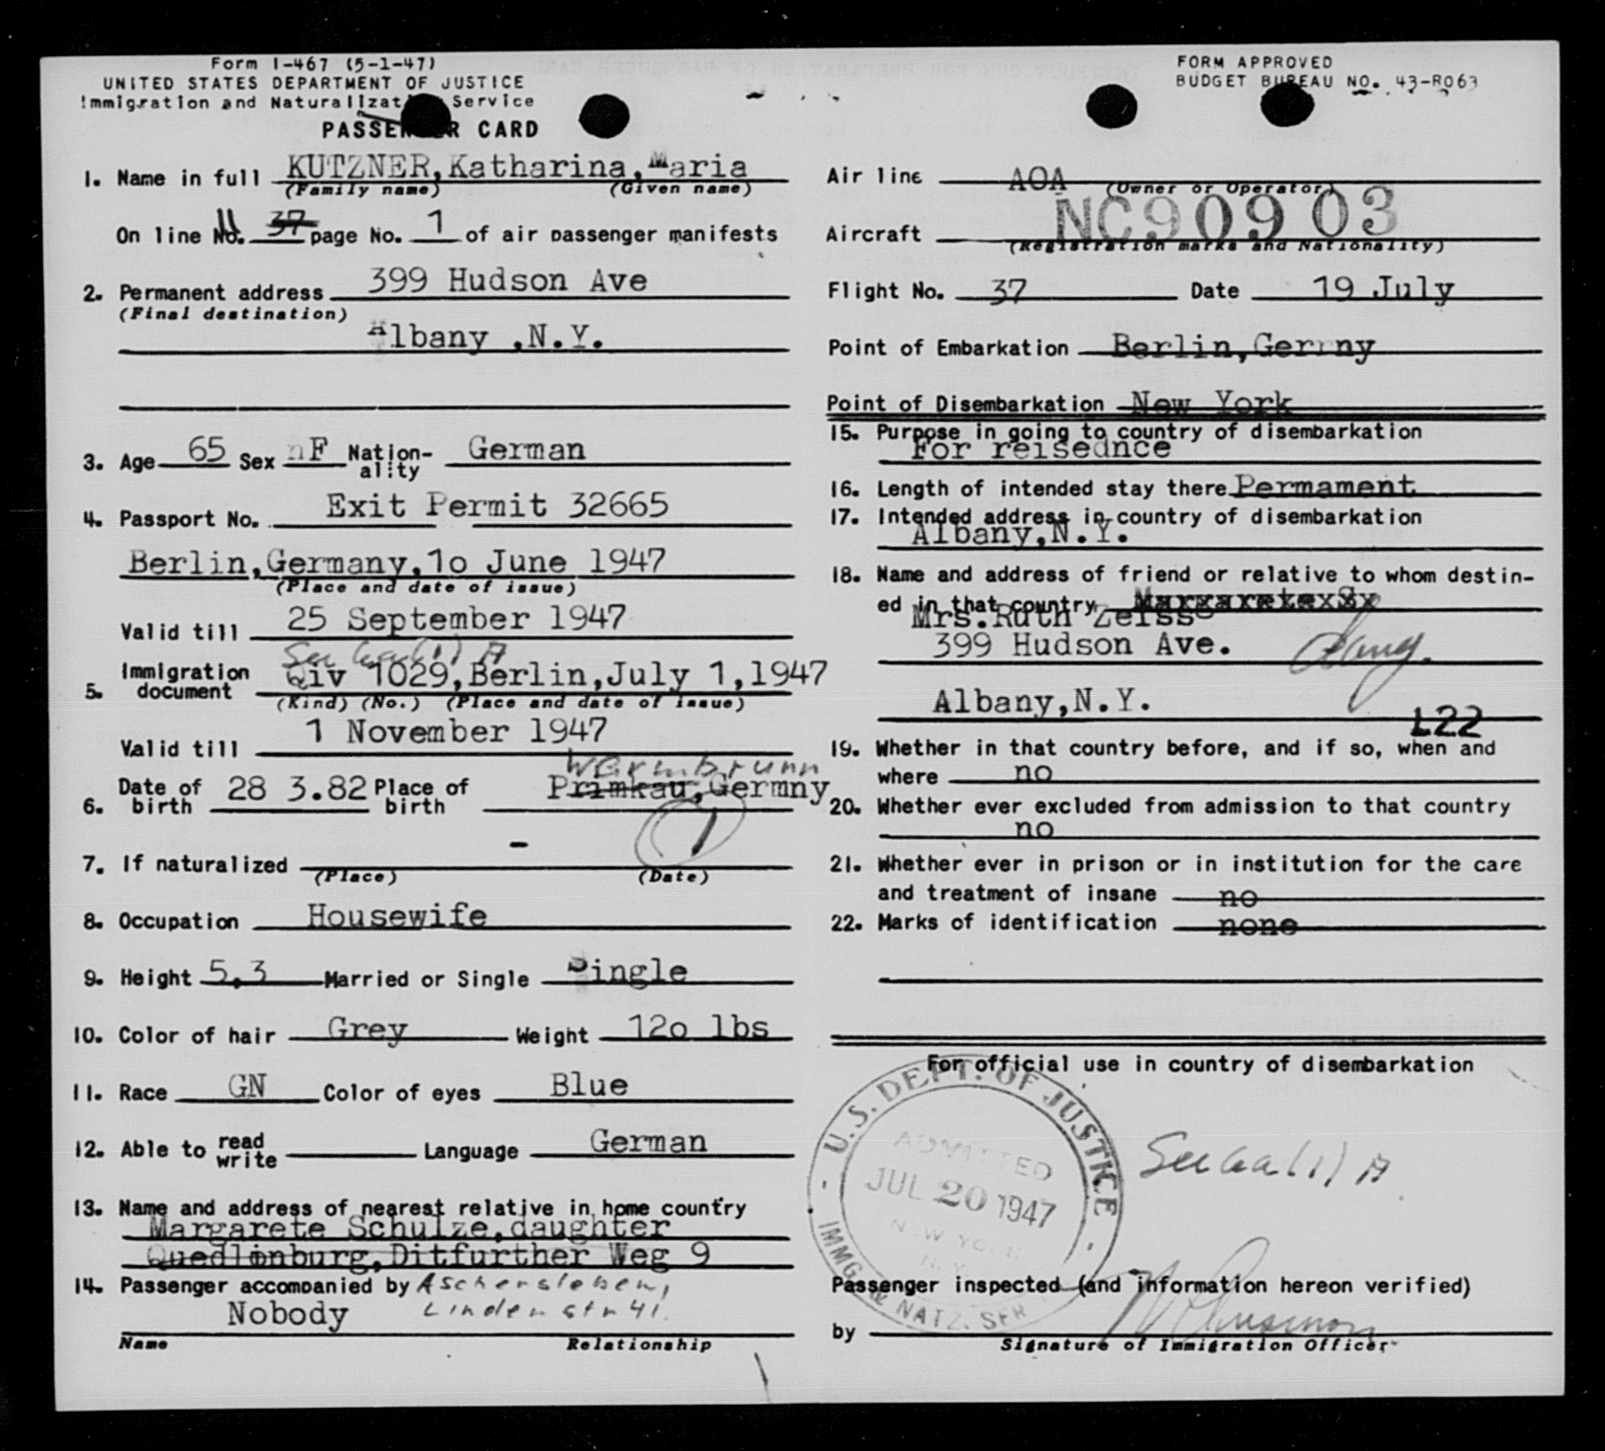 Form I-467 (5-1-47)
UNITED STATES DEPARTMENT OF JUSTICE
Immigration and Naturalizat Service
PASSENGER CARD
1. Name in full KUTZNER, Katharina, Maria
(Family name) (Given name)
On line No. 11 37 page No. 1 of air passenger manifests
2. Permanent address 399 Hudson Ave
(Final destination)
Albany ,N.Y.
3. Age 65 Sex F Nation-ality German
4. Passport No. Exit Permit 32665
Berlin,Germany,1o June 1947
(Place and date of issue)
Valid till 25 September 1947
5. Immigration document Qiv 1029,Berlin,July 1,1947
(Kind) (No.) (Place and date of issue)
Valid till 1 November 1947
Warmbrunn
6. Date of birth 28 3.82 Place of birth Primkau,Germny
1
7. If naturalized -
(Place) (Date)
8. Occupation Housewife
9. Height 5,3 Married or Single Single
10. Color of hair Grey Weight 12o lbs
11. Race GN Color of eyes Blue
12. Able to read write Language German
13. Name and address of nearest relative in home country
Margarete Schulze,daughter
Quedlinburg,Ditfurther Weg 9
14. Passenger accompanied by Aschersleben,
Nobody Lindenstr 41.
Name Relationship
FORM APPROVED
BUDGET BUREAU NO. 43-R063
Air line AOA
(Owner or Operator)
Aircraft NC90903
(Registration marks and Nationality)
Flight No. 37 Date 19 July
Point of Embarkation Berlin,Gerrny
Point of Disembarkation New York
15. Purpose in going to country of disembarkation
For reisednce
16. Length of intended stay there Permament
17. Intended address in country of disembarkation
Albany,N.Y.
18. Name and address of friend or relative to whom destin-
ed in that country
Mrs.Ruth Zeiss
399 Hudson Ave.
Albany,N.Y.
L22
19. Whether in that country before, and if so, when and
where no
20. Whether ever excluded from admission to that country
no
21. Whether ever in prison or in institution for the care
and treatment of insane no
22. Marks of identification none
For official use in country of disembarkation
U.S. DEPT. OF JUSTICE
ADMITTED
JUL 20 1947
NEW YORK
N.Y.
IMMG. & NATZ. SER
Passenger inspected (and information hereon verified)
by
Signature of Immigration Officer